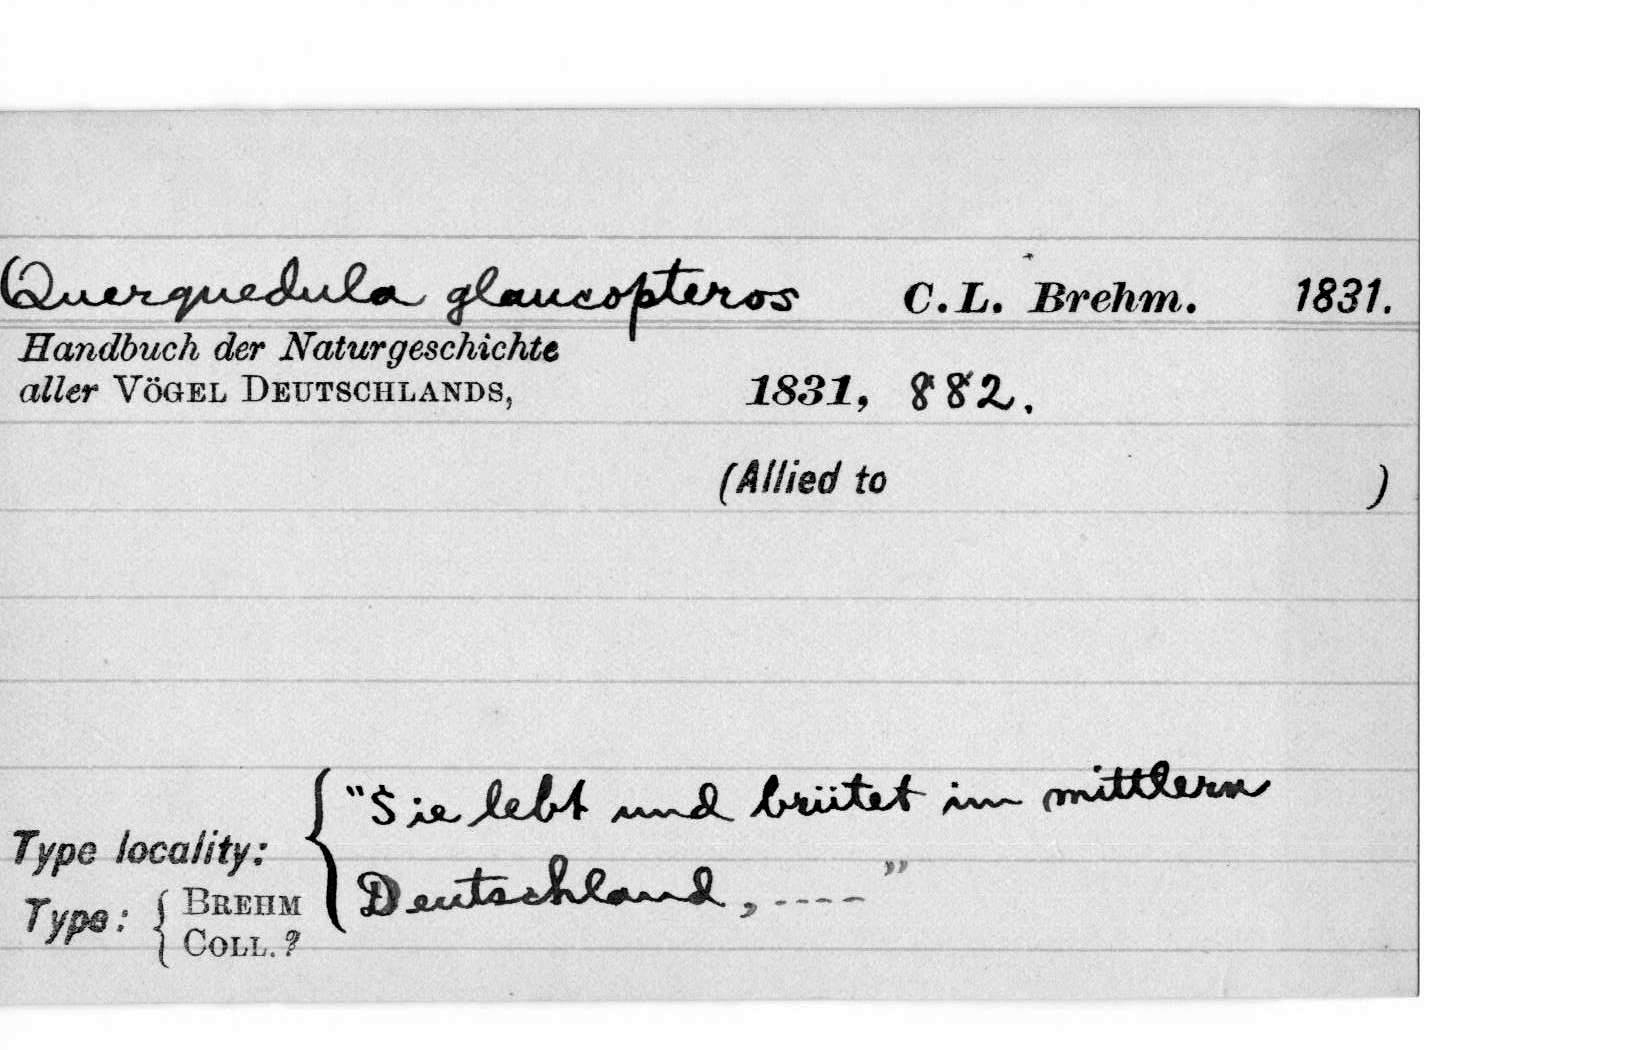 Querquedula glaucopteros C.L. Brehm. 1831.
Handbuch der Naturgeschichte
aller VÖGEL DEUTSCHLANDS, 1831, 882.
(Allied to )
"Sie lebt und brütet im mittlern
Type locality:
Deutschland, ----"
Type: { BREHM
COLL.?